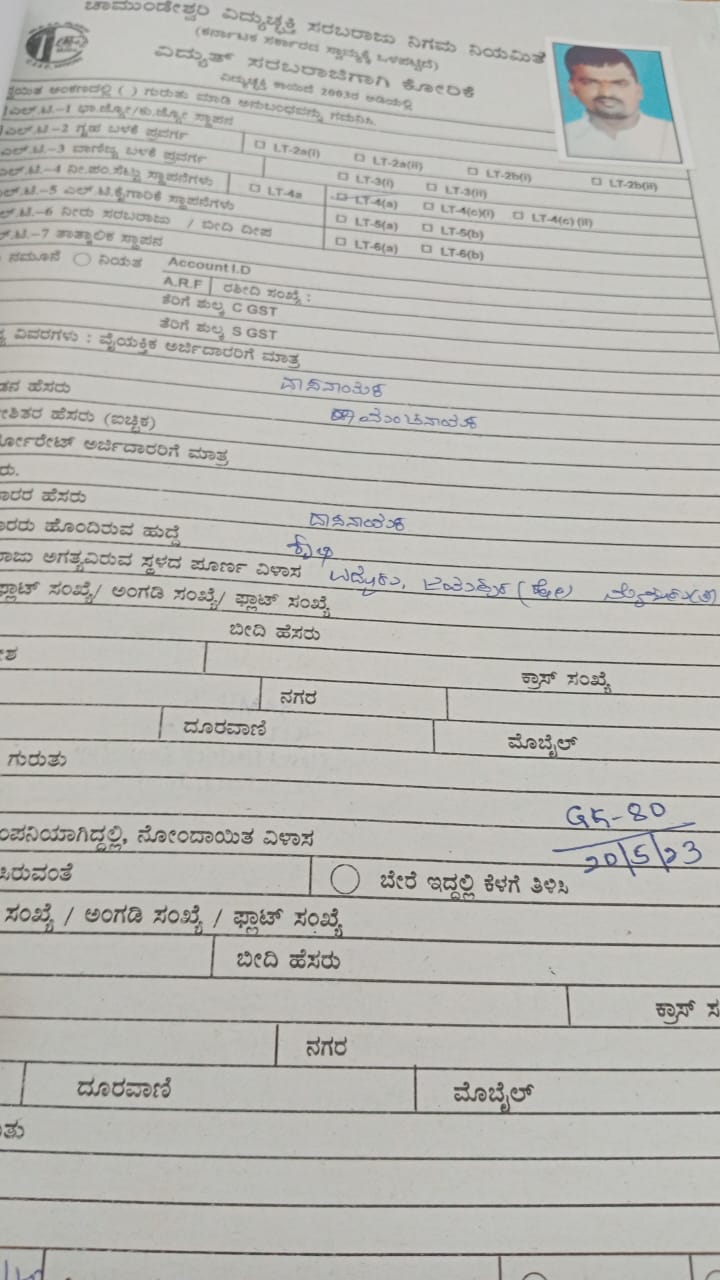 ಚಾಮುಂಡೇಶ್ವರಿ ವಿದ್ಯುಚ್ಛಕ್ತಿ ಸರಬರಾಜು ನಿಗಮ ನಿಯಮಿತ
(ಕರ್ನಾಟಕ ಸರ್ಕಾರದ ಸ್ವಾಮ್ಯಕ್ಕೆ ಒಳಪಟ್ಟಿದೆ)
ವಿದ್ಯುತ್ ಸರಬರಾಜಿಗಾಗಿ ಕೋರಿಕೆ
ವಿದ್ಯುಚ್ಛಕ್ತಿ ಕಾಯಿದೆ 2003ರ ಅಡಿಯಲ್ಲಿ
ಅಂಕಣದಲ್ಲಿ ( ) ಗುರುತು ಮಾಡಿ ಅನುಬಂಧವನ್ನು ಗಮನಿಸಿ.
ಎಲ್.ಟಿ.-1 ಭಾ.ಜ್ಯೋ/ಕು.ಜ್ಯೋ ಸ್ಥಾಪನ
ಎಲ್.ಟಿ.-2 ಗೃಹ ಬಳಕೆ ಪ್ರವರ್ಗ LT-2a(i) LT-2a(ii) LT-2b(i) LT-2b(ii)
ಎಲ್.ಟಿ.-3 ವಾಣಿಜ್ಯ ಬಳಕೆ ಪ್ರವರ್ಗ LT-3(i) LT-3(ii)
ಎಲ್.ಟಿ.-4 ನೀ.ಪಂ.ಸೆಟ್ಟು ಸ್ಥಾಪನೆಗಳು LT-4a LT-4(a) LT-4(c)(i) LT-4(c)(ii)
ಲ್.ಟಿ.-5 ಎಲ್.ಟಿ.ಕೈಗಾರಿಕೆ ಸ್ಥಾಪನೆಗಳು LT-5(a) LT-5(b)
ಲ್.ಟಿ.-6 ನೀರು ಸರಬರಾಜು / ಬೀದಿ ದೀಪ LT-6(a) LT-6(b)
ಲ್.ಟಿ.-7 ತಾತ್ಕಾಲಿಕ ಸ್ಥಾಪನ
ನಮೂನೆ ನಿಯತ Account I.D
A.R.F ರಶೀದಿ ಸಂಖ್ಯೆ :
ತೆರಿಗೆ ಶುಲ್ಕ C GST
ತೆರಿಗೆ ಶುಲ್ಕ S GST
ವಿವರಗಳು : ವೈಯಕ್ತಿಕ ಅರ್ಜಿದಾರರಿಗೆ ಮಾತ್ರ
ಹೆಸರು ದಾಸನಾಯಕ
ಹೆಸರು (ಐಚ್ಛಿಕ)
ರ್ಪೋರೇಟ್ ಅರ್ಜಿದಾರರಿಗೆ ಮಾತ್ರ
ರು.
ಾರರ ಹೆಸರು
ಾರರು ಹೊಂದಿರುವ ಹುದ್ದೆ ದಾಸನಾಯಕ
ಕೃಷಿ
ರಾಜು ಅಗತ್ಯವಿರುವ ಸ್ಥಳದ ಪೂರ್ಣ ವಿಳಾಸ
ಫ್ಲಾಟ್ ಸಂಖ್ಯೆ/ ಅಂಗಡಿ ಸಂಖ್ಯೆ/ ಫ್ಲಾಟ್ ಸಂಖ್ಯೆ
ಬೀದಿ ಹೆಸರು
ಕ್ರಾಸ್ ಸಂಖ್ಯೆ
ನಗರ
ದೂರವಾಣಿ ಮೊಬೈಲ್
ಗುರುತು
GK-80
20/5/23
ಂಪನಿಯಾಗಿದ್ದಲ್ಲಿ, ನೋಂದಾಯಿತ ವಿಳಾಸ
ಸಿರುವಂತೆ ಬೇರೆ ಇದ್ದಲ್ಲಿ ಕೆಳಗೆ ತಿಳಿಸಿ
ಸಂಖ್ಯೆ / ಅಂಗಡಿ ಸಂಖ್ಯೆ / ಫ್ಲಾಟ್ ಸಂಖ್ಯೆ
ಬೀದಿ ಹೆಸರು
ಕ್ರಾಸ್ ಸ
ನಗರ
ದೂರವಾಣಿ ಮೊಬೈಲ್
ತು